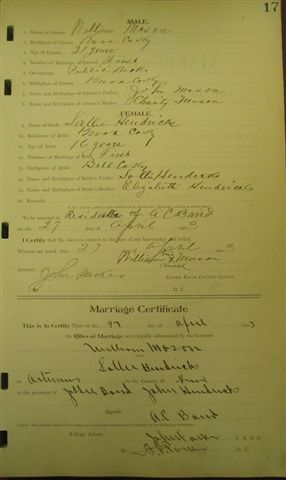 17
MALE.
1. Name of Groom William Mason
2. Residence of Groom Knox Co Ky
3. Age of Groom 21 years
4. Number of Marriage of Groom First
5. Occupation Public Works
6. Birthplace of Groom Knox Co Ky
7. Name and Birthplace of Groom's Father John Mason
8. Name and Birthplace of Groom's Mother Charity Mason
FEMALE.
9. Name of Bride Sallie Hendricks
10. Residence of Bride Knox Co Ky
11. Age of Bride 16 years
12. Number of Marriage of Bride First
13. Birthplace of Bride Bell Co Ky
14. Name and Birthplace of Bride's Father Hendricks
15. Name and Birthplace of Bride's Mother Elizabeth Hendricks
16. Remarks
To be married at Residence of A C Baird
on the 27 day of April 3
I Certify that the above is correct to the best of my knowledge and belief.
Witness my hand, this 27 of April 3
William his Mason
mark
Attest:
John Parker
CLERK KNOX COUNTY COURT.
D. C.
Marriage Certificate
This is to Certify That on the 27 day of April 3
the Rites of Marriage were legally solemnized by me between
William Mason
Sallie Hendrick
at Artemus in the County of Knox
in the presence of Baird John Hendrick
Signed,
A.C. Baird
A Copy Attest:
C. K. C. C.
By D. C.